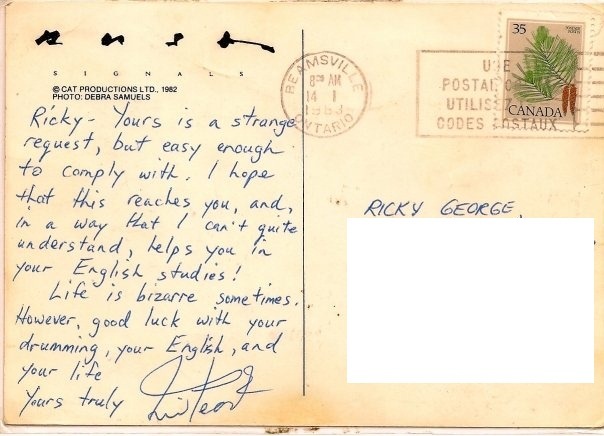 S I G N A L S
© CAT PRODUCTIONS LTD., 1982
PHOTO: DEBRA SAMUELS
Ricky- Yours is a strange
request, but easy enough
to comply with. I hope
that this reaches you, and,
in a way that I can't quite
understand, helps you in
your English studies!
Life is bizarre sometimes.
However, good luck with your
drumming, your English, and
your life
Yours truly
BEAMSVILLE
8 AM
14 I
ONTARIO
USE
POSTAL
UTILISEZ
CODES POSTAUX
35
CANADA
RICKY GEORGE,